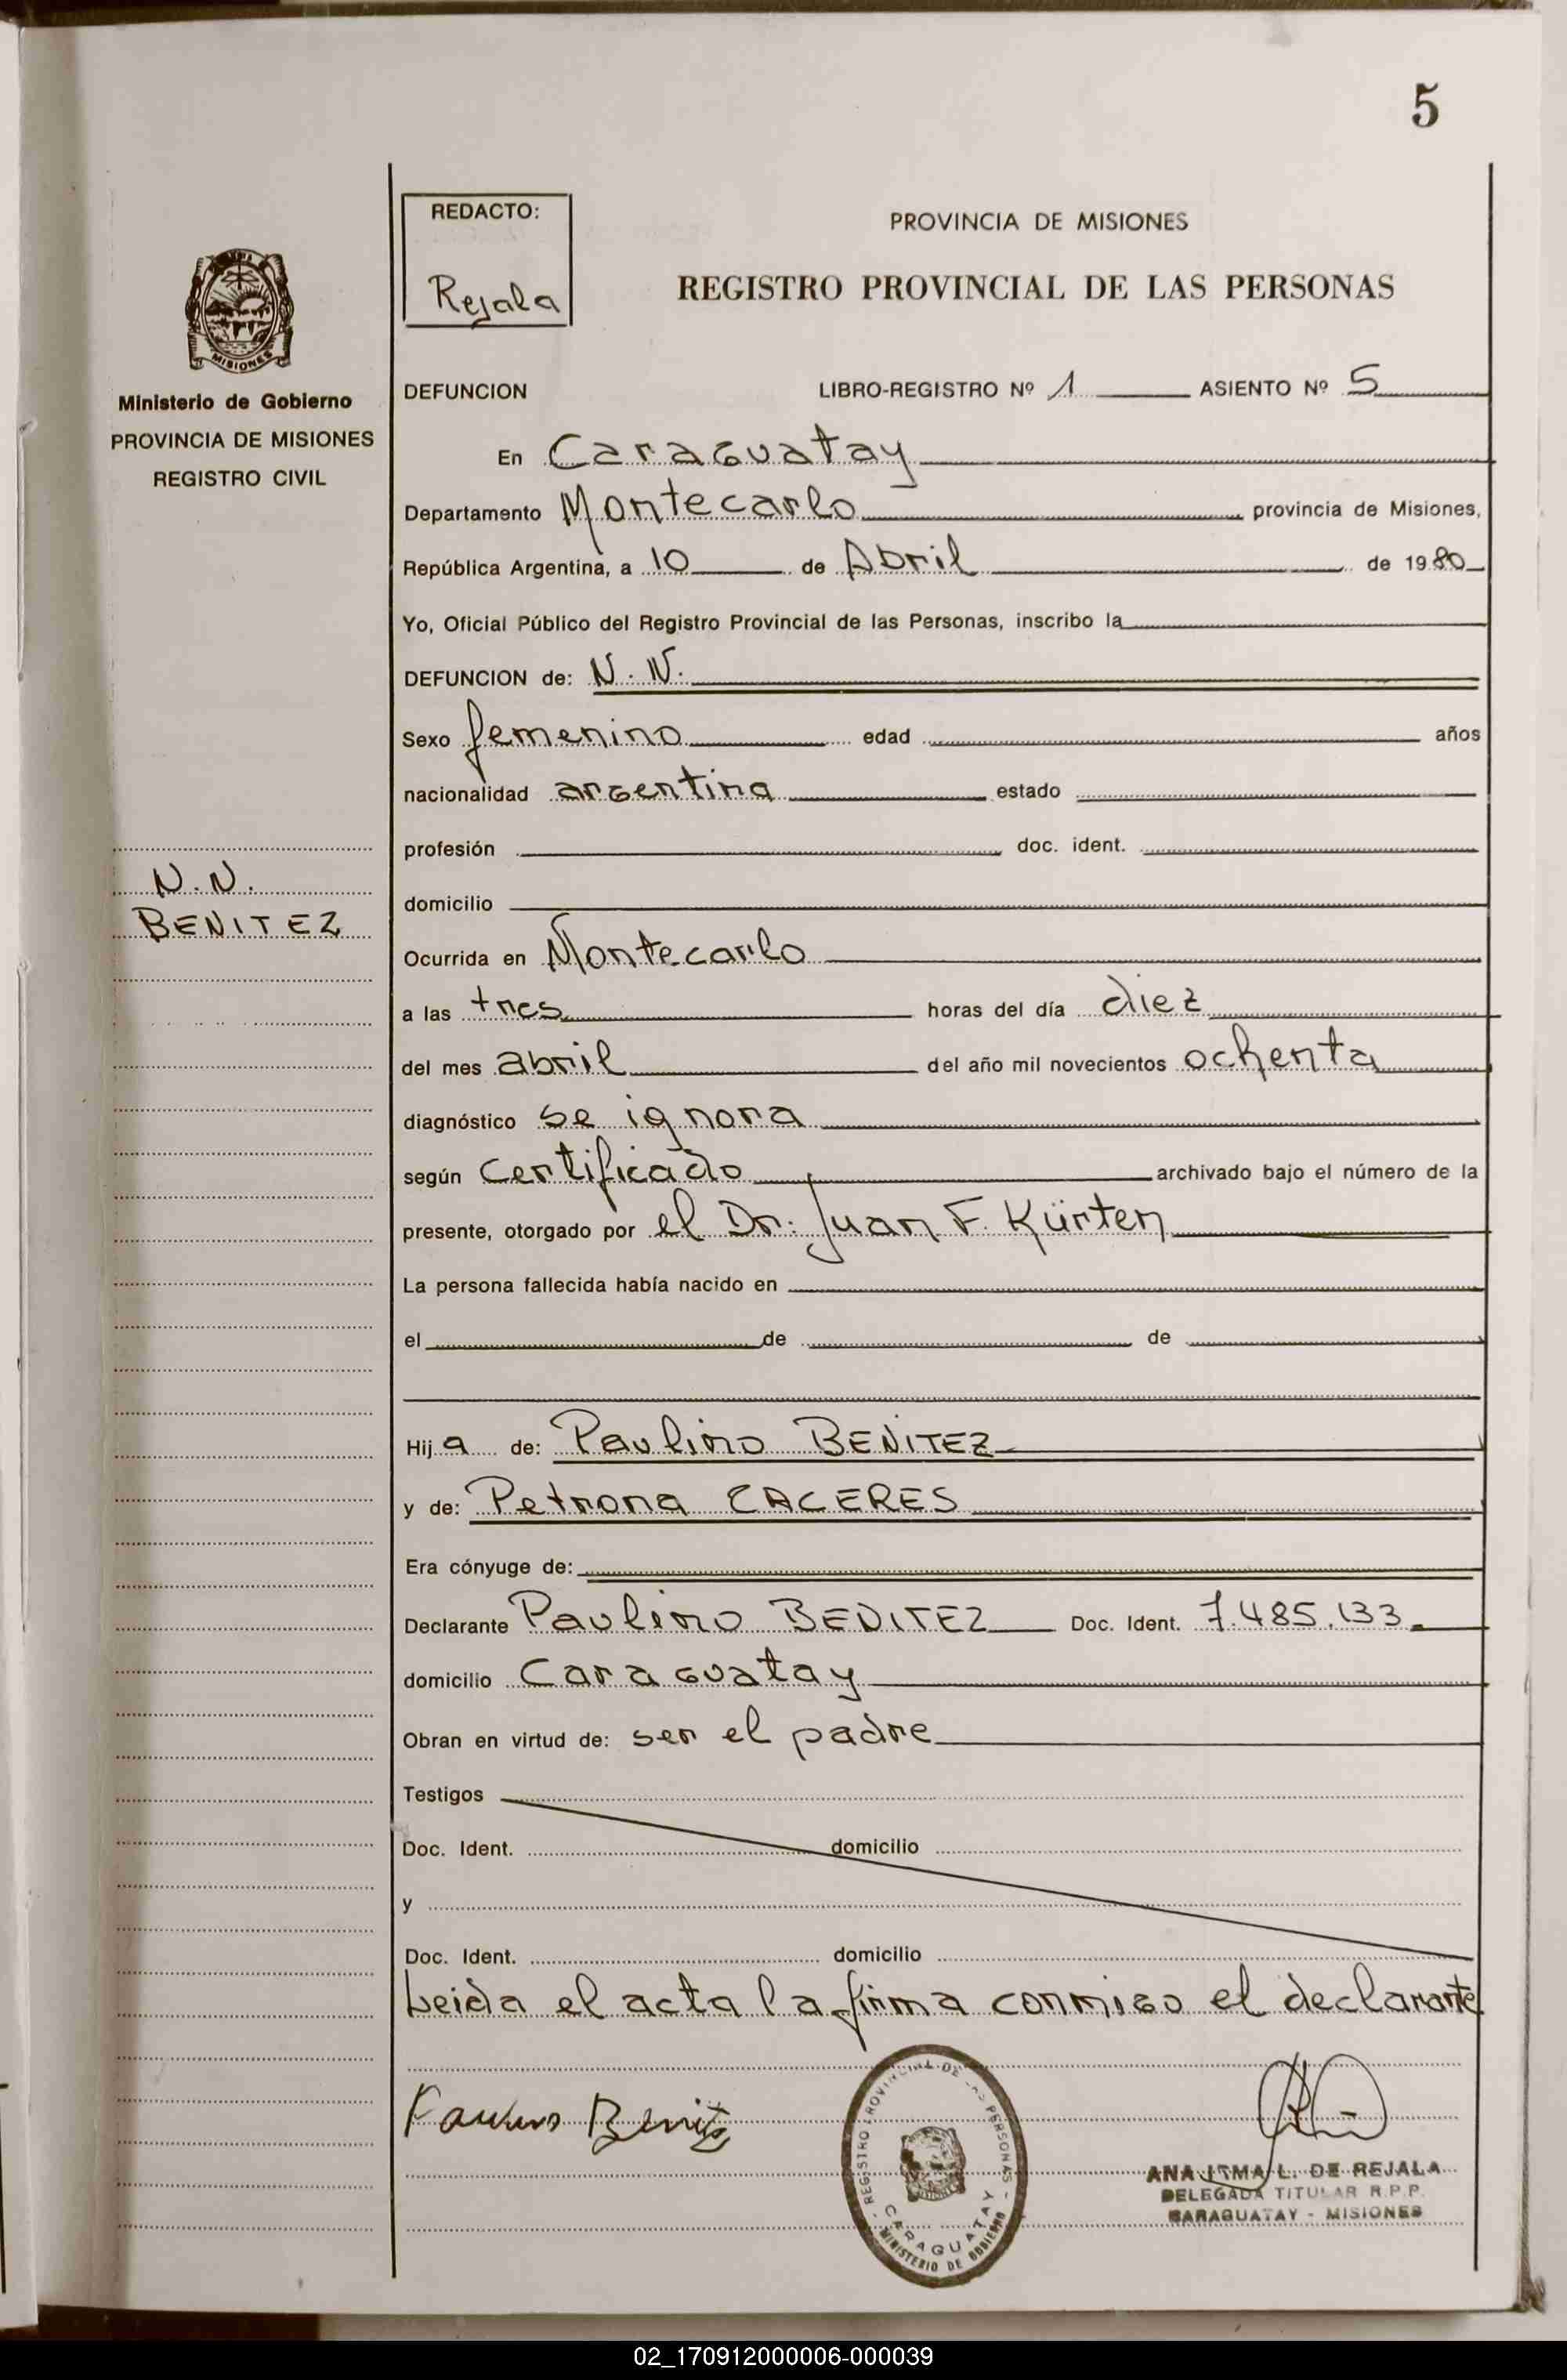 5
REDACTO:
Rejala
PROVINCIA DE MISIONES
REGISTRO PROVINCIAL DE LAS PERSONAS
MISIONES
Ministerio de Gobierno
PROVINCIA DE MISIONES
REGISTRO CIVIL
DEFUNCION LIBRO-REGISTRO Nº 1 ASIENTO Nº 5
En Caraguatay
Departamento Montecarlo provincia de Misiones,
República Argentina, a 10 de Abril de 1980
Yo, Oficial Público del Registro Provincial de las Personas, inscribo la
DEFUNCION de: N. N.
Sexo femenino edad años
nacionalidad argentina estado
profesión doc. ident.
N. N.
BENITEZ
domicilio
Ocurrida en Montecarlo
a las tres horas del día diez
del mes abril del año mil novecientos ochenta
diagnóstico se ignora
según certificado archivado bajo el número de la
presente, otorgado por el Dr. Juan F. Kürten
La persona fallecida había nacido en
el de de
Hija de: Paulino BENITEZ
y de: Petrona CACERES
Era cónyuge de:
Declarante Paulino BENITEZ Doc. Ident. 7.485.133
domicilio Caraguatay
Obran en virtud de: ser el padre
Testigos
Doc. Ident. domicilio
y
Doc. Ident. domicilio
Leida el acta la firma conmigo el declarante
Paulino Benitez
REGISTRO PROVINCIAL DE LAS PERSONAS
CARAGUATAY
MINISTERIO DE GOBIERNO
ANA IRMA L. DE REJALA
DELEGADA TITULAR R.P.P.
CARAGUATAY - MISIONES
02_170912000006-000039